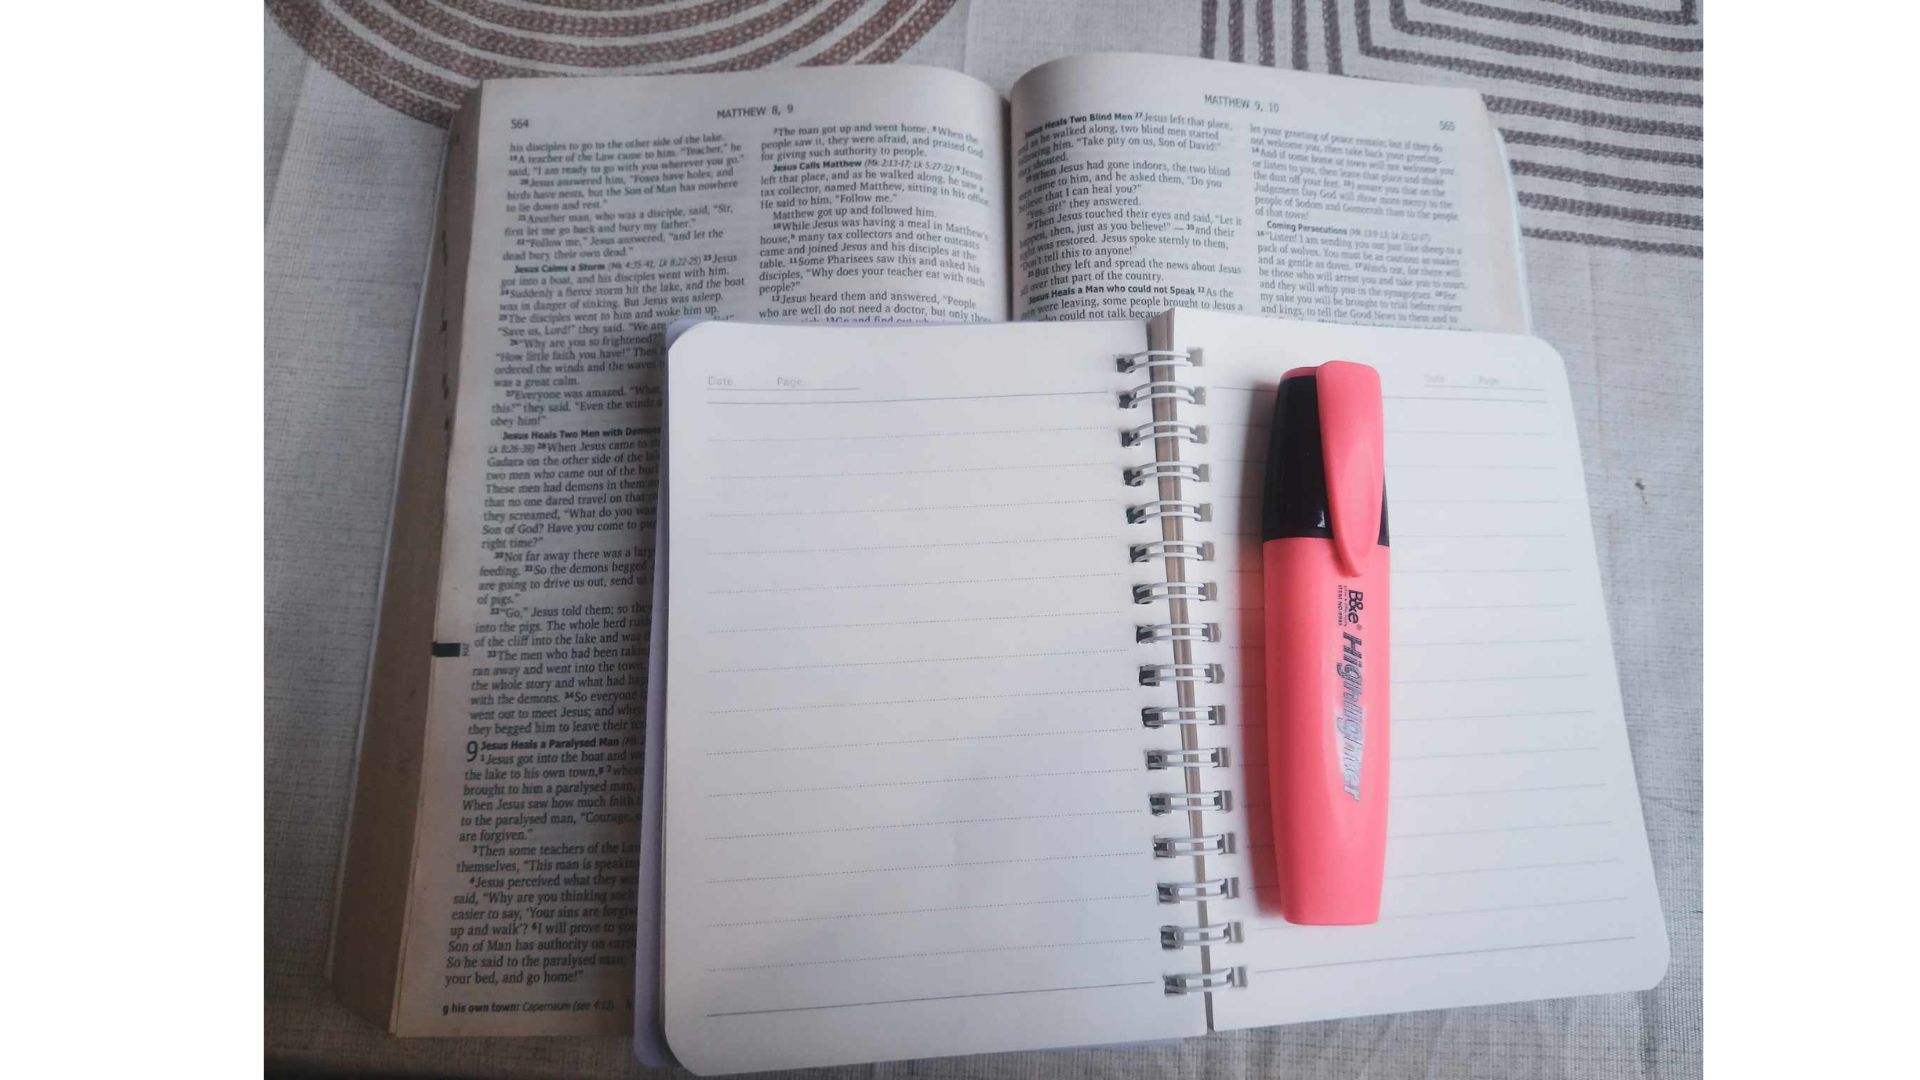 564
MATTHEW 8, 9
his disciples to go to the other side of the lake.
19A teacher of the Law came to him. "Teacher," he
said, "I am ready to go with you wherever you go."
20Jesus answered him, "Foxes have holes, and
birds have nests, but the Son of Man has nowhere
to lie down and rest."
21Another man, who was a disciple, said, "Sir,
first let me go back and bury my father."
22"Follow me," Jesus answered, "and let the
dead bury their own dead."
Jesus Calms a Storm (Mk 4:35-41; Lk 8:22-25) 23Jesus
got into a boat, and his disciples went with him.
24Suddenly a fierce storm hit the lake, and the boat
was in danger of sinking. But Jesus was asleep.
25The disciples went to him and woke him up.
"Save us, Lord!" they said. "We are
26"Why are you so frightened?"
"How little faith you have!" Then
ordered the winds and the waves
was a great calm.
27Everyone was amazed. "What
this?" they said. "Even the winds
obey him!"
Jesus Heals Two Men with Demons
Lk 8:26-39) 28When Jesus came to
Gadara on the other side of the
two men who came out of the
These men had demons in them
that no one dared travel on that
they screamed, "What do you
Son of God? Have you come to
right time?"
30Not far away there was a
feeding. 31So the demons begged
are going to drive us out, send
of pigs."
32"Go," Jesus told them; so they
into the pigs. The whole herd
of the cliff into the lake and was
33The men who had been
ran away and went into the town,
the whole story and what had
with the demons. 34So everyone
went out to meet Jesus; and when
they begged him to leave their
MAT
9 Jesus Heals a Paralysed Man
1Jesus got into the boat and
the lake to his own town,g 2where
brought to him a paralysed man,
When Jesus saw how much faith
to the paralysed man, "Courage,
are forgiven."
3Then some teachers of the Law
themselves, "This man is speaking
4Jesus perceived what they
said, "Why are you thinking such
easier to say, 'Your sins are
up and walk'? 6I will prove to you
Son of Man has authority on earth
So he said to the paralysed man,
your bed, and go home!"
g his own town: Capernaum (see 4:13).
7The man got up and went home. 8When the
people saw it, they were afraid, and praised God
for giving such authority to people.
Jesus Calls Matthew (Mk 2:13-17; Lk 5:27-32) 9Jesus
left that place, and as he walked along, he saw a
tax collector, named Matthew, sitting in his office.
He said to him, "Follow me."
Matthew got up and followed him.
10While Jesus was having a meal in Matthew's
house,h many tax collectors and other outcasts
came and joined Jesus and his disciples at the
table. 11Some Pharisees saw this and asked his
disciples, "Why does your teacher eat with such
people?"
12Jesus heard them and answered, "People
who are well do not need a doctor, but only those
13Go and find out
MATTHEW 9, 10
565
Jesus Heals Two Blind Men 27Jesus left that place,
and as he walked along, two blind men started
following him. "Take pity on us, Son of David!"
they shouted.
28When Jesus had gone indoors, the two blind
men came to him, and he asked them, "Do you
believe that I can heal you?"
"Yes, sir!" they answered.
29Then Jesus touched their eyes and said, "Let it
happen, then, just as you believe!" — 30and their
sight was restored. Jesus spoke sternly to them,
"Don't tell this to anyone!"
31But they left and spread the news about Jesus
all over that part of the country.
Jesus Heals a Man who could not Speak 32As the
men were leaving, some people brought to Jesus a
who could not talk because
let your greeting of peace remain; but if they do
not welcome you, then take back your greeting.
14And if some home or town will not welcome you
or listen to you, then leave that place and shake
the dust off your feet. 15I assure you that on the
Judgement Day God will show more mercy to the
people of Sodom and Gomorrah than to the people
of that town!
Coming Persecutions (Mk 13:9-13; Lk 21:12-17)
16"Listen! I am sending you out just like sheep to a
pack of wolves. You must be as cautious as snakes
and as gentle as doves. 17Watch out, for there will
be those who will arrest you and take you to court,
and they will whip you in the synagogues. 18For
my sake you will be brought to trial before rulers
and kings, to tell the Good News to them and to
Date. Page.
Date Page
B&e®
ITEM NO
Highlighter